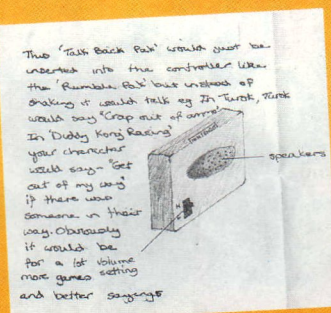 This 'Talk Back Pak' would just be
inserted into the controller like
the 'Rumble Pak' but instead of
shaking it would talk eg In Turok, Turok
would say "Crap out of ammo"
In 'Diddy Kong Racing'
your character
would say - "Get
out of my way"
if there was
someone in their
way. Obviously
it would be
for a lot
more games
and better sayings
speakers
volume
setting